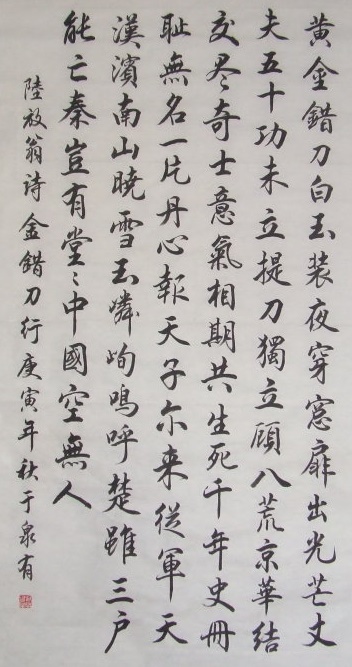 黄金錯刀白玉装夜穿窓扉出光芒丈
夫五十功未立提刀獨立顧八荒京華结
交尽奇士意氣相期共生死千年史冊
耻無名一片丹心報天子尓来從軍天
漢濱南山曉雪玉嶙峋嗚呼楚雖三户
能亡秦豈有堂〻中國空無人
陸放翁诗金錯刀行庚寅年秋于泉有